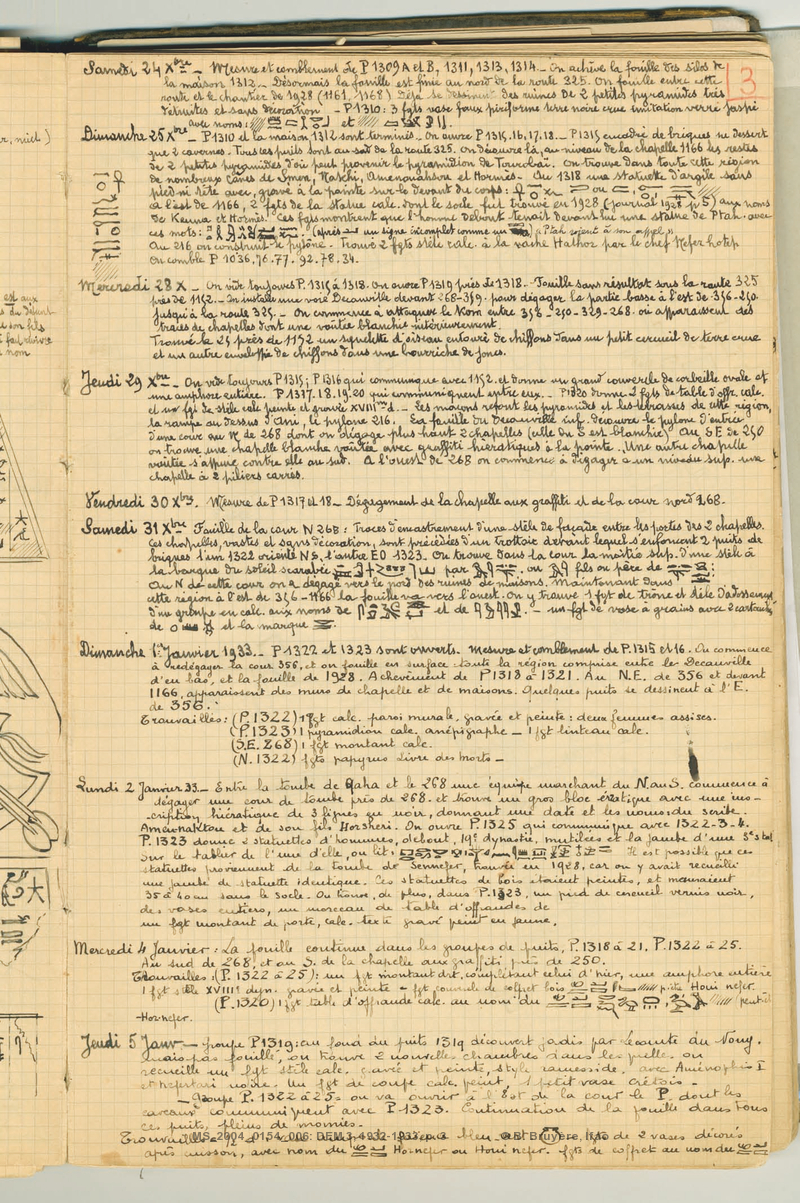 3
Samedi 24 Xbre – Mesure et comblement de P 1309 A et B, 1311, 1313, 1314. – On achève la fouille des silos de
la maison 1312. – Désormais la fouille est finie au nord de la route 325. On fouille entre cette
route et le chantier de 1928 (1161, 1168) Déjà se dessinent des ruines de 2 petites pyramides très
détruites et sans décoration – P1310 : 3 fgts vase faux piriforme terre noire crue imitation verre jaspé
avec noms : et
Dimanche 25 Xbre – P 1310 et la maison 1312 sont terminés. – On ouvre P 1315, 16, 17, 18. – P 1315 encadré de briques ne dessert
que 2 cavernes. Tous ces puits sont au sud de la route 325. On découvre là, au niveau de la chapelle 1166 les restes
de 2 petites pyramides d'où peut provenir le pyramidion de . On trouve dans toute cette région
de nombreux cônes de , , Amenouahsou et Hormès – Au 1318 une statuette d'argile sans
pied ni tête avec, gravé à la pointe sur le devant du corps : ou
A l'est de 1166, 2 fgts de la statue calc. dont le socle fut trouvé en 1928 (journal 1928 p 5) aux noms
de Kenna et Hormès. Ces fgts montrent que l'homme debout tenait devant lui une statue de Ptah. avec
ces mots : (après un signe incomplet comme un ) « Ptah à son appel »
Au 216 on construit le pylône. – Trouvé 2 fgts stèle calc. à la vache Hathor par le chef Neferhotep
On comble P 1036, 76. 77. 92. 78. 34.
Mercredi 28 X – On vide toujours P. 1315 à 1318. On ouvre P 1319 près de 1318. – Fouille sans résultat sous la route 325
près de 1152. – On installe une voie Decauville devant 268-359 pour dégager la partie basse à l'est de 356-250
jusqu'à la route 325. – On commence à attaquer le Kom entre 358-250-329-268. où apparaissent des
traces de chapelles dont une voûtée blanchie intérieurement.
Trouvé le 25 près de 1152 un squelette d'oiseau entouré de chiffons dans un petit cercueil de terre crue
et un autre enveloppé de chiffons dans une bourriche de joncs.
Jeudi 29 Xbre – On vide toujours P 1315 ; P 1316 qui communique avec 1152 et donne un grand couvercle de corbeille ovale et
une amphore entière. P 1317. 18. 19. 20 qui communiquent entre eux. – P1320 donne 2 fgts de table d'offr. calc.
et un fgt de stèle calc. peinte et gravée XVIIIme d. – Les maçons refont les pyramides et les terrasses de cette région,
la rampe au dessus d'Ani, le pylône 216. La fouille du Decauville inf. découvre le pylone d'entrée
d'une cour au N de 268 dont on dégage plus haut 2 chapelles (celle du S est blanchie) Au SE de 250
on trouve une chapelle blanche voûtée avec graffiti hiératiques à la pointe. Une autre chapelle
voûtée s'appuie contre elle au sud. A l'ouest de 268 on commence à dégager à un niveau sup. une
chapelle à 2 piliers carrés.
Vendredi 30 Xbre. Mesure de P 1317 et 18 – Dégagement de la chapelle aux graffiti et de la cour nord 268.
Samedi 31 Xbre Fouille de la cour N 268 : Traces d'encastrement d'une stèle de façade entre les portes des 2 chapelles.
Ces chapelles, vastes et sans décoration, sont précédées d'un trottoir devant lequel s'enfoncent 2 puits de
briques l'un 1322 orienté NS, l'autre EO 1323. On trouve dans la cour la moitié sup. d'une stèle à
la barque du soleil scarabée par ou fils ou père de
Au N de cette cour on a dégagé vers le nord des ruines de maisons. Maintenant dans
cette région à l'est de 356-1166 la fouille va vers l'ouest. On y trouve 1 fgt de trône et dalle d'adossement
d'un groupe en calc. aux noms de et de – un fgt de vase à grains avec 2 cartouches
de et la marque
Dimanche 1er Janvier 1933. – P 1322 et 1323 sont ouverts. Mesure et comblement de P. 1315 et 16. On commence
à redégager la cour 356, et on fouille en surface toute la région comprise entre le Decauville
d'en bas, et la fouille de 1928. Achèvement de P 1318 à 1321. Au N.E. de 356 et devant
1166, apparaissent des murs de chapelle et de maisons. Quelques puits se dessinent à l'E.
de 356.
Trouvailles : (P. 1322) 1 fgt calc. paroi murale, gravée et peinte : deux femmes assises.
(P. 1323) 1 pyramidion calc. anépigraphe – 1 fgt linteau calc.
(S.E. 268) 1 fgt montant calc.
(N. 1322) fgts papyrus Livre des Morts –
Lundi 2 Janvier 33. – Entre la tombe de Qaha et le 268 une équipe marchant du N. au S. commence à
dégager une cour de tombe près de 268. et trouve un gros bloc ératique avec une ins-
cription hiératique de 3 lignes en noir, donnant une date et les noms : du scribe
Amennakhtou et de son fils Horsheri. On ouvre P. 1325 qui communique avec 1322-3-4.
P. 1323 donne 2 statuettes d'hommes, debout, 19e dynastie, mutilées et la jambe d'une 3e stat
sur le tablier de l'une d'elle, on lit : Il est possible que ces
statuettes proviennent de la tombe de Sennefer, trouvée en 1928, car on y avait recueilli
une jambe de statuette identique. Ces statuettes de bois étaient peintes, et mesuraient
35 à 40 cm sans le socle. On trouve, de plus, dans P. 1323, un pied de cercueil vernis noir,
des vases entiers, un morceau de table d'offrandes de
un fgt montant de porte, calc. texte gravé peint en jaune.
Mercredi 4 Janvier : La fouille continue dans les groupes de puits, P. 1318 à 21. P. 1322 à 25.
Au sud de 268, et au S. de la chapelle aux graffiti, près de 250.
Trouvailles : (P. 1322 à 25) : un fgt montant drt, complétant celui d'hier, une amphore entière
1 fgt stèle XVIIIe dyn. gravée et peinte – fgt couvercle de coffret bois Houi nefer
(P. 1320) 1 fgt table d'offrande calc. au nom du peut-être
Hornefer.
Jeudi 5 Janv – groupe P1319 : au fond du puits 1319 découvert jadis par Lecomte du Nouy.
mais pas fouillé, on trouve 2 nouvelles chambres dans lesquelles on
recueille un fgt stèle calc. gravé et peinte, style ramesside, avec Aménophis I
et Nefertari noire. Un fgt de coupe calc. peint, 1 petit vase crétois –
– Groupe P. 1322 à 25 on va ouvrir à l'Est de la cour le P. dont les
caveaux communiquent avec P 1323. Continuation de la fouille dans tous
ces puits, pleins de momies.
de 2 vases décorés
après cuisson, avec nom du Hornefer ou Houi nefer. fgts de coffret au nom du
MS_2004_0154_006: DEM 3-1932-1933 page 3 © B. Bruyère, Ifao